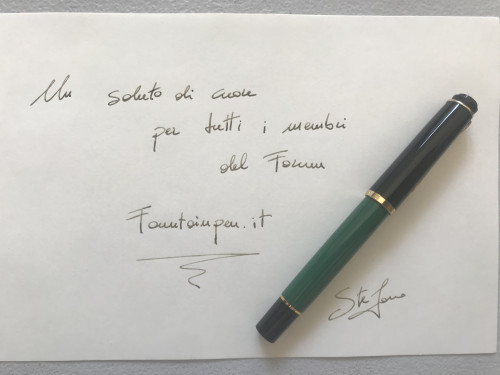 Un saluto di cuore
per tutti i membri
del Forum
Fountainpen.it
Stefano